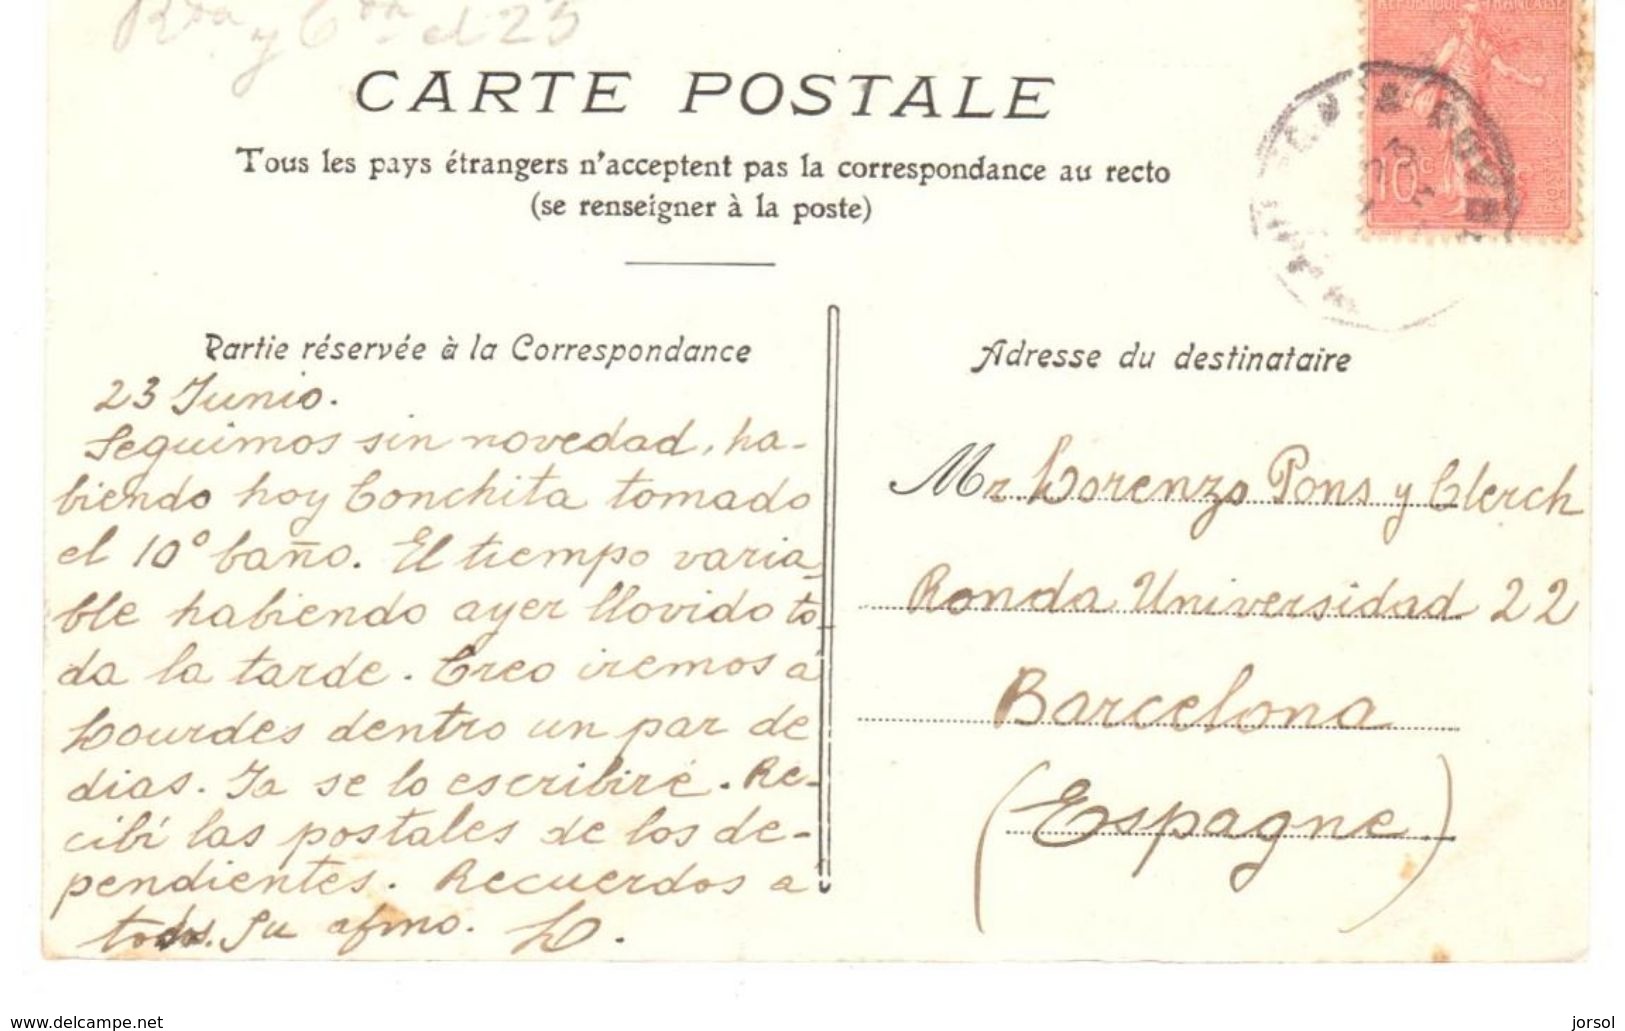 Rda y Cda el 23
CARTE POSTALE
Tous les pays étrangers n'acceptent pas la correspondance au recto
(se renseigner à la poste)
REPUBLIQUE FRANÇAISE
10c
Partie réservée à la Correspondance
23 Junio.
Seguimos sin novedad, ha-
biendo hoy Conchita tomado
el 10º baño. El tiempo varia-
ble habiendo ayer llovido to-
da la tarde. Creo iremos á
Lourdes dentro un par de
dias. Ya se lo escribiré. Re-
cibí las postales de los de-
pendientes. Recuerdos a
todos. Su afmo. L.
Adresse du destinataire
Mr Lorenzo Pons y Clerch
Ronda Universidad 22
Barcelona
(Espagne)
www.delcampe.net
jorsol